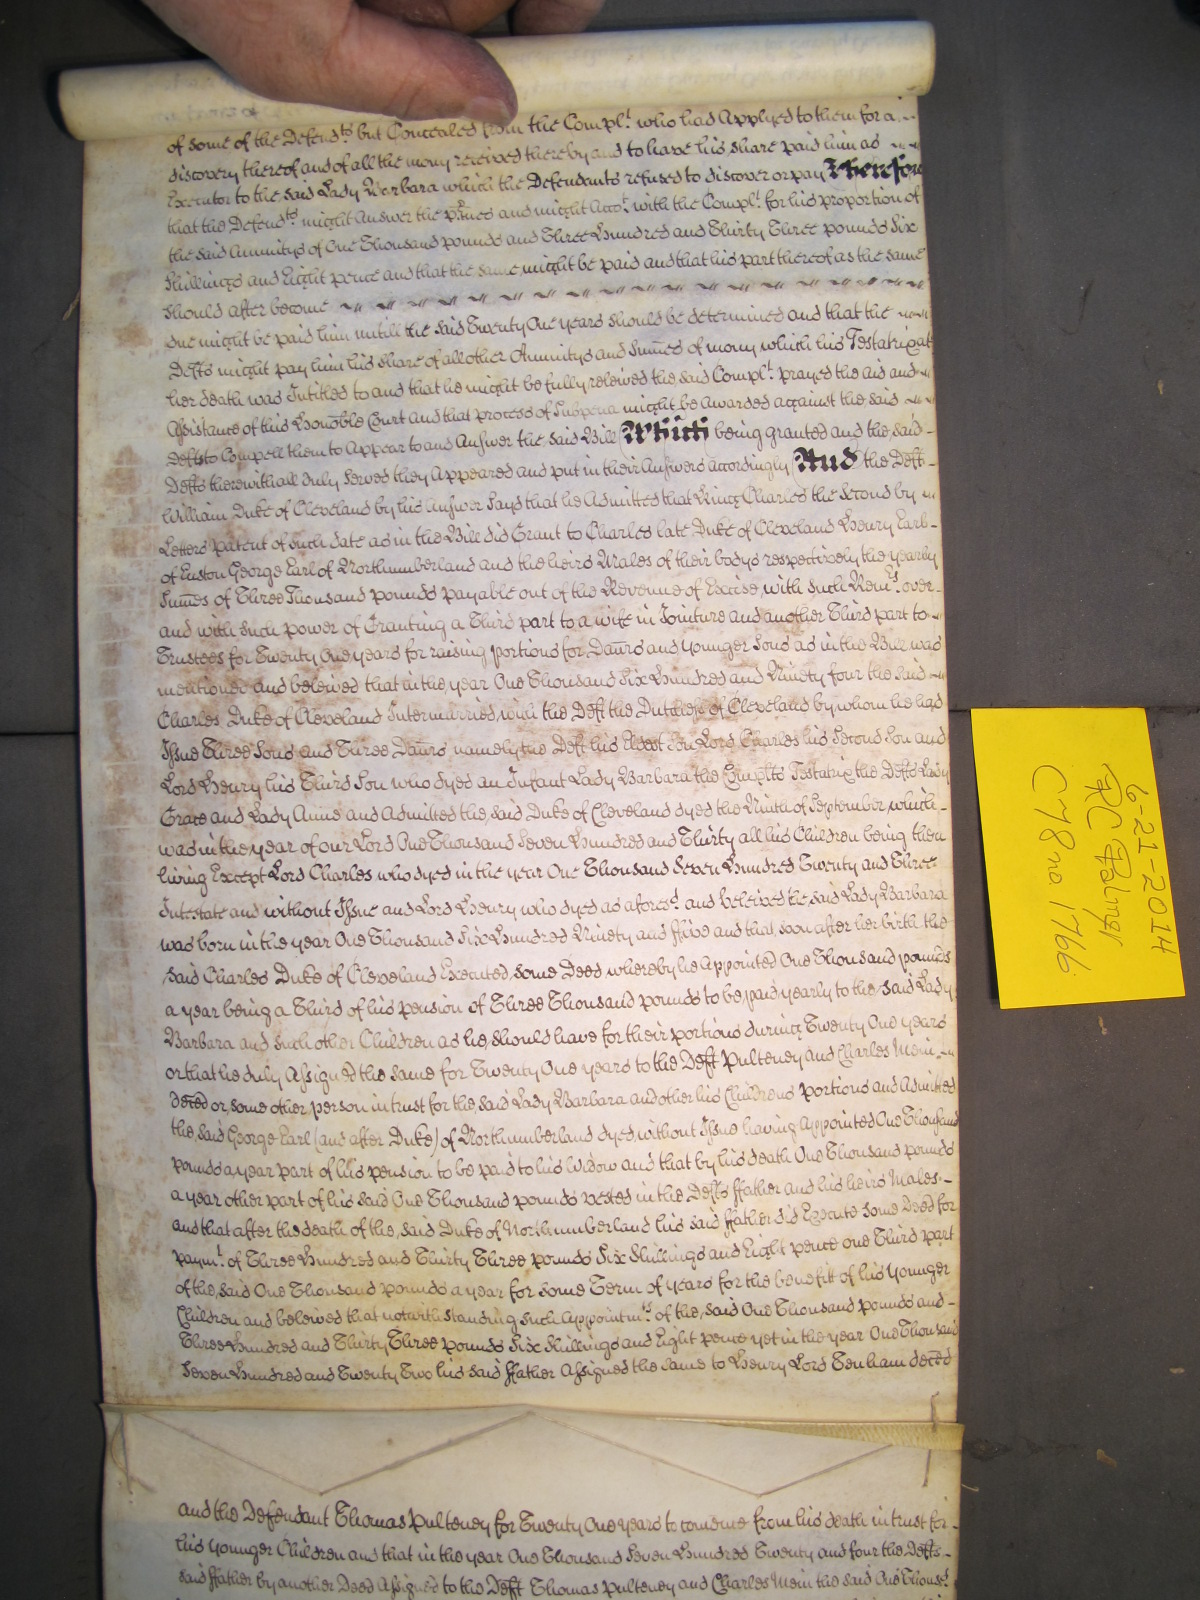 of some of the Defend.ts but Concealed from the Compl.t who had Applyed to them for a
discovery thereof and of all the mony received thereby and to have his share paid him as
Executor to the said Lady Barbara which the Defendants refused to discover or pay Therefore
that the Defend.ts might Answer the p̃mes and might Acco.t with the Compl.t for his proportion of
the said Annuitys of One Thousand pounds and Three Hundred and Thirty Three pounds Six
Shillings and Eight pence and that the same might be paid and that his part thereof as the same
should after become
due might be paid him untill the said Twenty One years should be determined and that the
Defts might pay him his share of all other Annuitys and Sum̃es of mony which his Testatrix at
her death was Intitled to and that he might be fully releived the said Compl.t prayed the aid and
Assistance of this Honoble Court and that process of Subpena might be Awarded against the said
Defts to Compell them to Appear to and Answer the said Bill Which being granted and the said
Defts therewithall duly served they Appeared and put in their Answers accordingly And the Deft
William Duke of Cleveland by his Answer Says that he Admitted that King Charles the Second by
Letters patent of such date as in the Bill did Grant to Charles late Duke of Cleveland Henry Earl
of Euston George Earl of Northumberland and the heirs Males of their bodys respectively the yearly
Sum̃es of Three Thousand pounds payable out of the Revenue of Excise with such Rem.rs over
and with such power of Granting a Third part to a wife in Jointure and another Third part to
Trustees for Twenty One years for raising portions for Daũrs and younger Sons as in the Bill was
mentioned and beleived that in the year One Thousand Six Hundred and Ninety four the said
Charles Duke of Cleveland Intermarried with the Deft the Dutchess of Cleveland by whom he had
Issue Three Sons and Three Daũrs namely the Deft his Eldest Son Lord Charles his Second Son and
Lord Henry his Third Son who dyed an Infant Lady Barbara the Complts Testatrix the Defts Lady
Grace and Lady Anne and Admitted the said Duke of Cleveland dyed the Ninth of September which
was in the year of our Lord One Thousand Seven Hundred and Thirty all his Children being then
living Except Lord Charles who dyed in the year One Thousand Seven Hundred Twenty and Three
Intestate and without Issue and Lord Henry who dyed as afores.d and beleived the said Lady Barbara
was born in the year One Thousand Six Hundred Ninety and ffive and that soon after her birth the
said Charles Duke of Cleveland Executed some Deed whereby he Appointed One Thousand pounds
a year being a Third of his pension of Three Thousand pounds to be paid yearly to the said Lady
Barbara and such other Children as he should have for their portions during Twenty One years
or that he duly Assigned the same for Twenty One years to the Deft Pulteney and Charles Mein
deced or some other person in trust for the said Lady Barbara and other his Childrens portions and Admitted
the said George Earl (and after Duke) of Northumberland dyed without Issue having Appointed One Thousand
pounds a year part of his pension to be paid to his Widow and that by his death One Thousand pounds
a year other part of his said One Thousand pounds vested in the Defts ffather and his heirs Males
and that after the death of the said Duke of Northumberland his said ffather did Execute some Deed for
paym.t of Three Hundred and Thirty Three pounds Six Shillings and Eight pence one Third part
of the said One Thousand pounds a year for some Term of years for the benefit of his Younger
Children and beleived that notwithstanding such Appointm.ts of the said One Thousand pounds and
Three Hundred and Thirty Three pounds Six Shillings and Eight pence yet in the year One Thousand
Seven Hundred and Twenty Two his said ffather Assigned the same to Henry Lord Tenham deced
and the Defendant Thomas Pulteney for Twenty One years to comence from his death in trust for
his younger Children and that in the year One Thousand Seven Hundred Twenty and four the Defts
said ffather by another Deed Assigned to the Deft Thomas Pulteney and Charles Mein the said One Thous.d
6-21-2014
C78 no. 1766